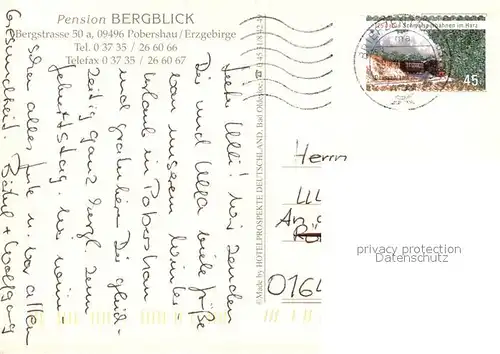 Pension BERGBLICK
Bergstrasse 50 a, 09496 Pobershau/Erzgebirge
Tel. 0 37 35 / 26 60 66
Telefax 0 37 35 / 26 60 67
Liebe Ulli! Wir senden
Dir und Ulla viele Grüße
von unserem Winter-
Urlaub in Pobershau
und gratulieren Dir gleich-
zeitig ganz herzl. zum
Geburtstag. Wir wün-
schen alles Gute u. vor allem
Gesundheit. Bärbel + Wolfgang
©Made by HOTELPROSPEKTE DEUTSCHLAND, Bad Oldesloe
im Harz
45
Herrn
Ulli
An
0164
privacy protection
Datenschutz